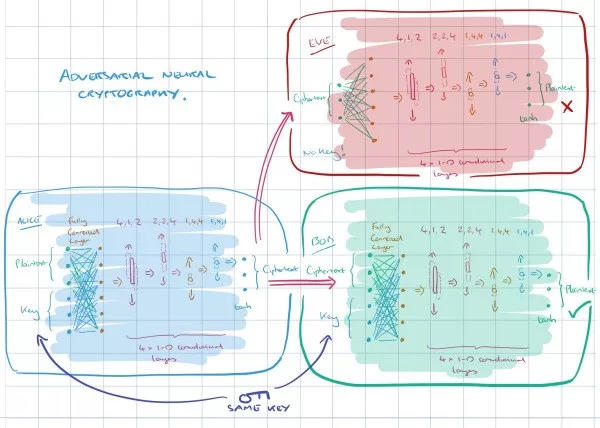 ADVERSARIAL NEURAL
CRYPTOGRAPHY.
EVE
4,1,2 2,2,4 1,4,4 1,4,1
Ciphertext
Plaintext
No Key!
tanh
4 x 1-D convolutional
layers
ALICE
Fully
Connected
Layer
4,1,2 2,2,4 1,4,4 1,4,1
Plaintext
Key
Ciphertext
tanh
4 x 1-D convolutional
layers
BOB
Fully
Connected
Layer
4,1,2 2,2,4 1,4,4 1,4,1
Ciphertext
Key
Plaintext
tanh
4 x 1-D convolutional
layers
SAME KEY